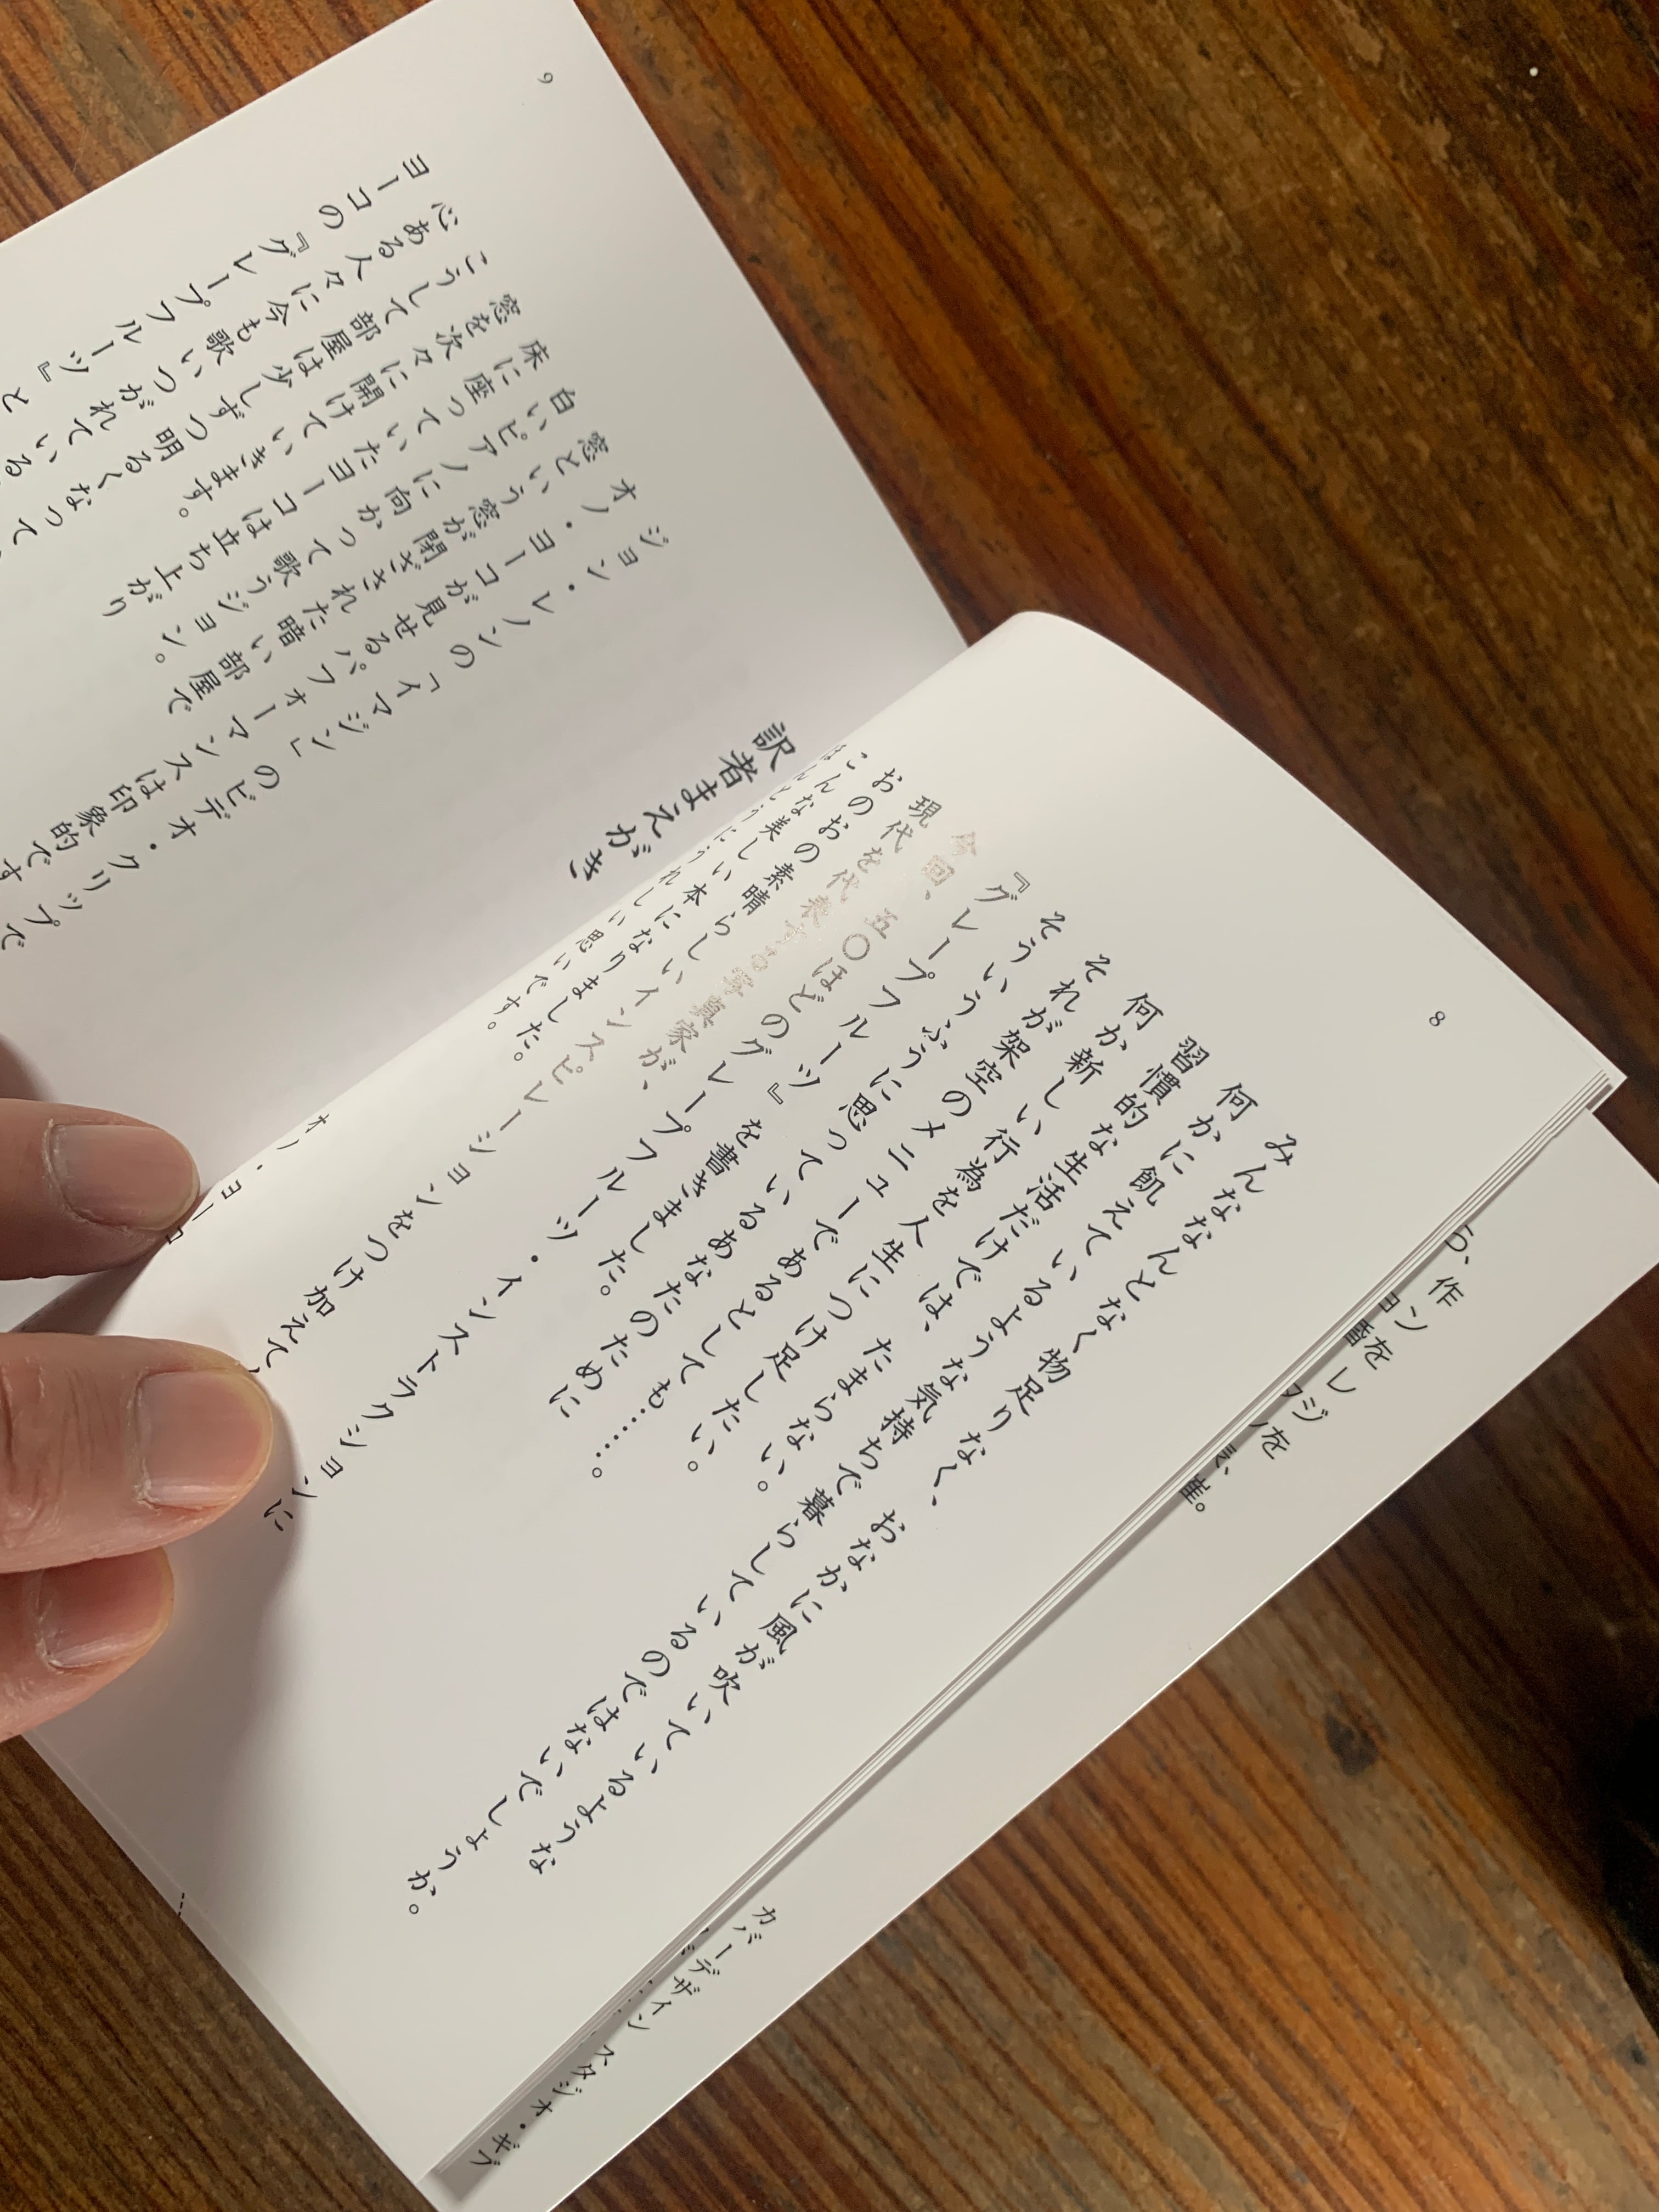 8
みんななんとなく物足りなく、おなかに風が吹いているような
何かに飢えているような気持ちで暮らしているのではないでしょうか。
習慣的な生活だけでは、たまらない。
何か新しい行為を人生につけ足したい。
それが架空のメニューであるとしても……。
そういうふうに思っているあなたのために
『グレープフルーツ』を書きました。
今回、五〇ほどのグレープフルーツ・インストラクションに
現代を代表する写真家が、
おのおの素晴らしいインスピレーションをつけ加えて
こんな美しい本になりました。
ほんとうにうれしい思いです。
オノ・ヨーコ
9
訳者まえがき
ジョン・レノンの「イマジン」のビデオ・クリップで
オノ・ヨーコが見せるパフォーマンスは印象的です
窓という窓が閉ざされた暗い部屋で
白いピアノに向かって歌うジョン。
床に座っていたヨーコは立ち上がり
窓を次々に開けていきます。
こうして部屋は少しずつ明るくなって
心ある人々に今も歌いつがれている
ヨーコの『グレープフルーツ』と
ら、作
ョン
カバーデザイン スタジオ・ギブ